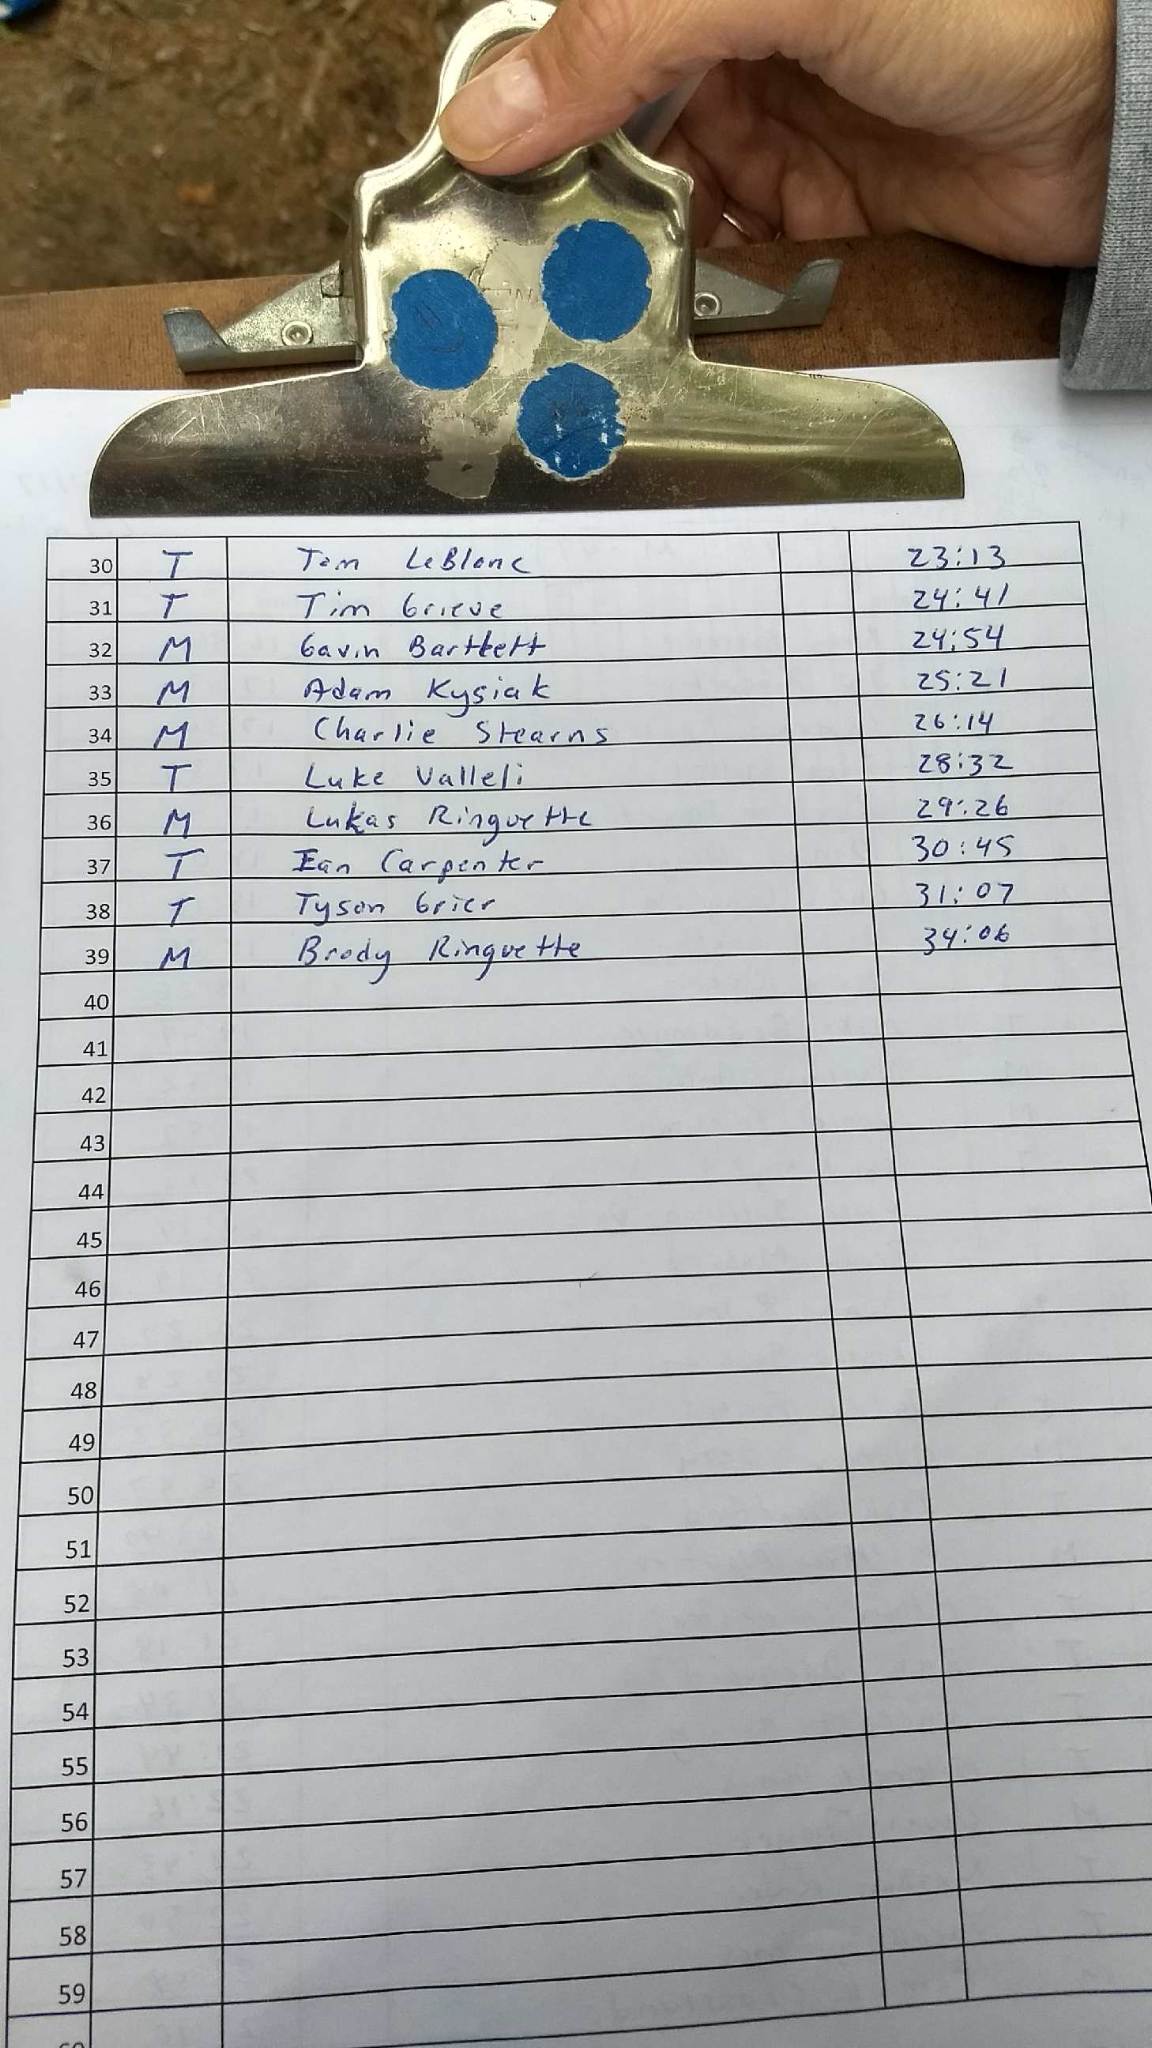 30 T Tom LeBlanc 23:13
31 T Tim Grieve 24:41
32 M Gavin Bartlett 24:54
33 M Adam Kysiak 25:21
34 M Charlie Stearns 26:14
35 T Luke Valleli 28:32
36 M Lukas Ringuette 29:26
37 T Ian Carpenter 30:45
38 T Tyson Grier 31:07
39 M Brody Ringuette 34:06
40
41
42
43
44
45
46
47
48
49
50
51
52
53
54
55
56
57
58
59